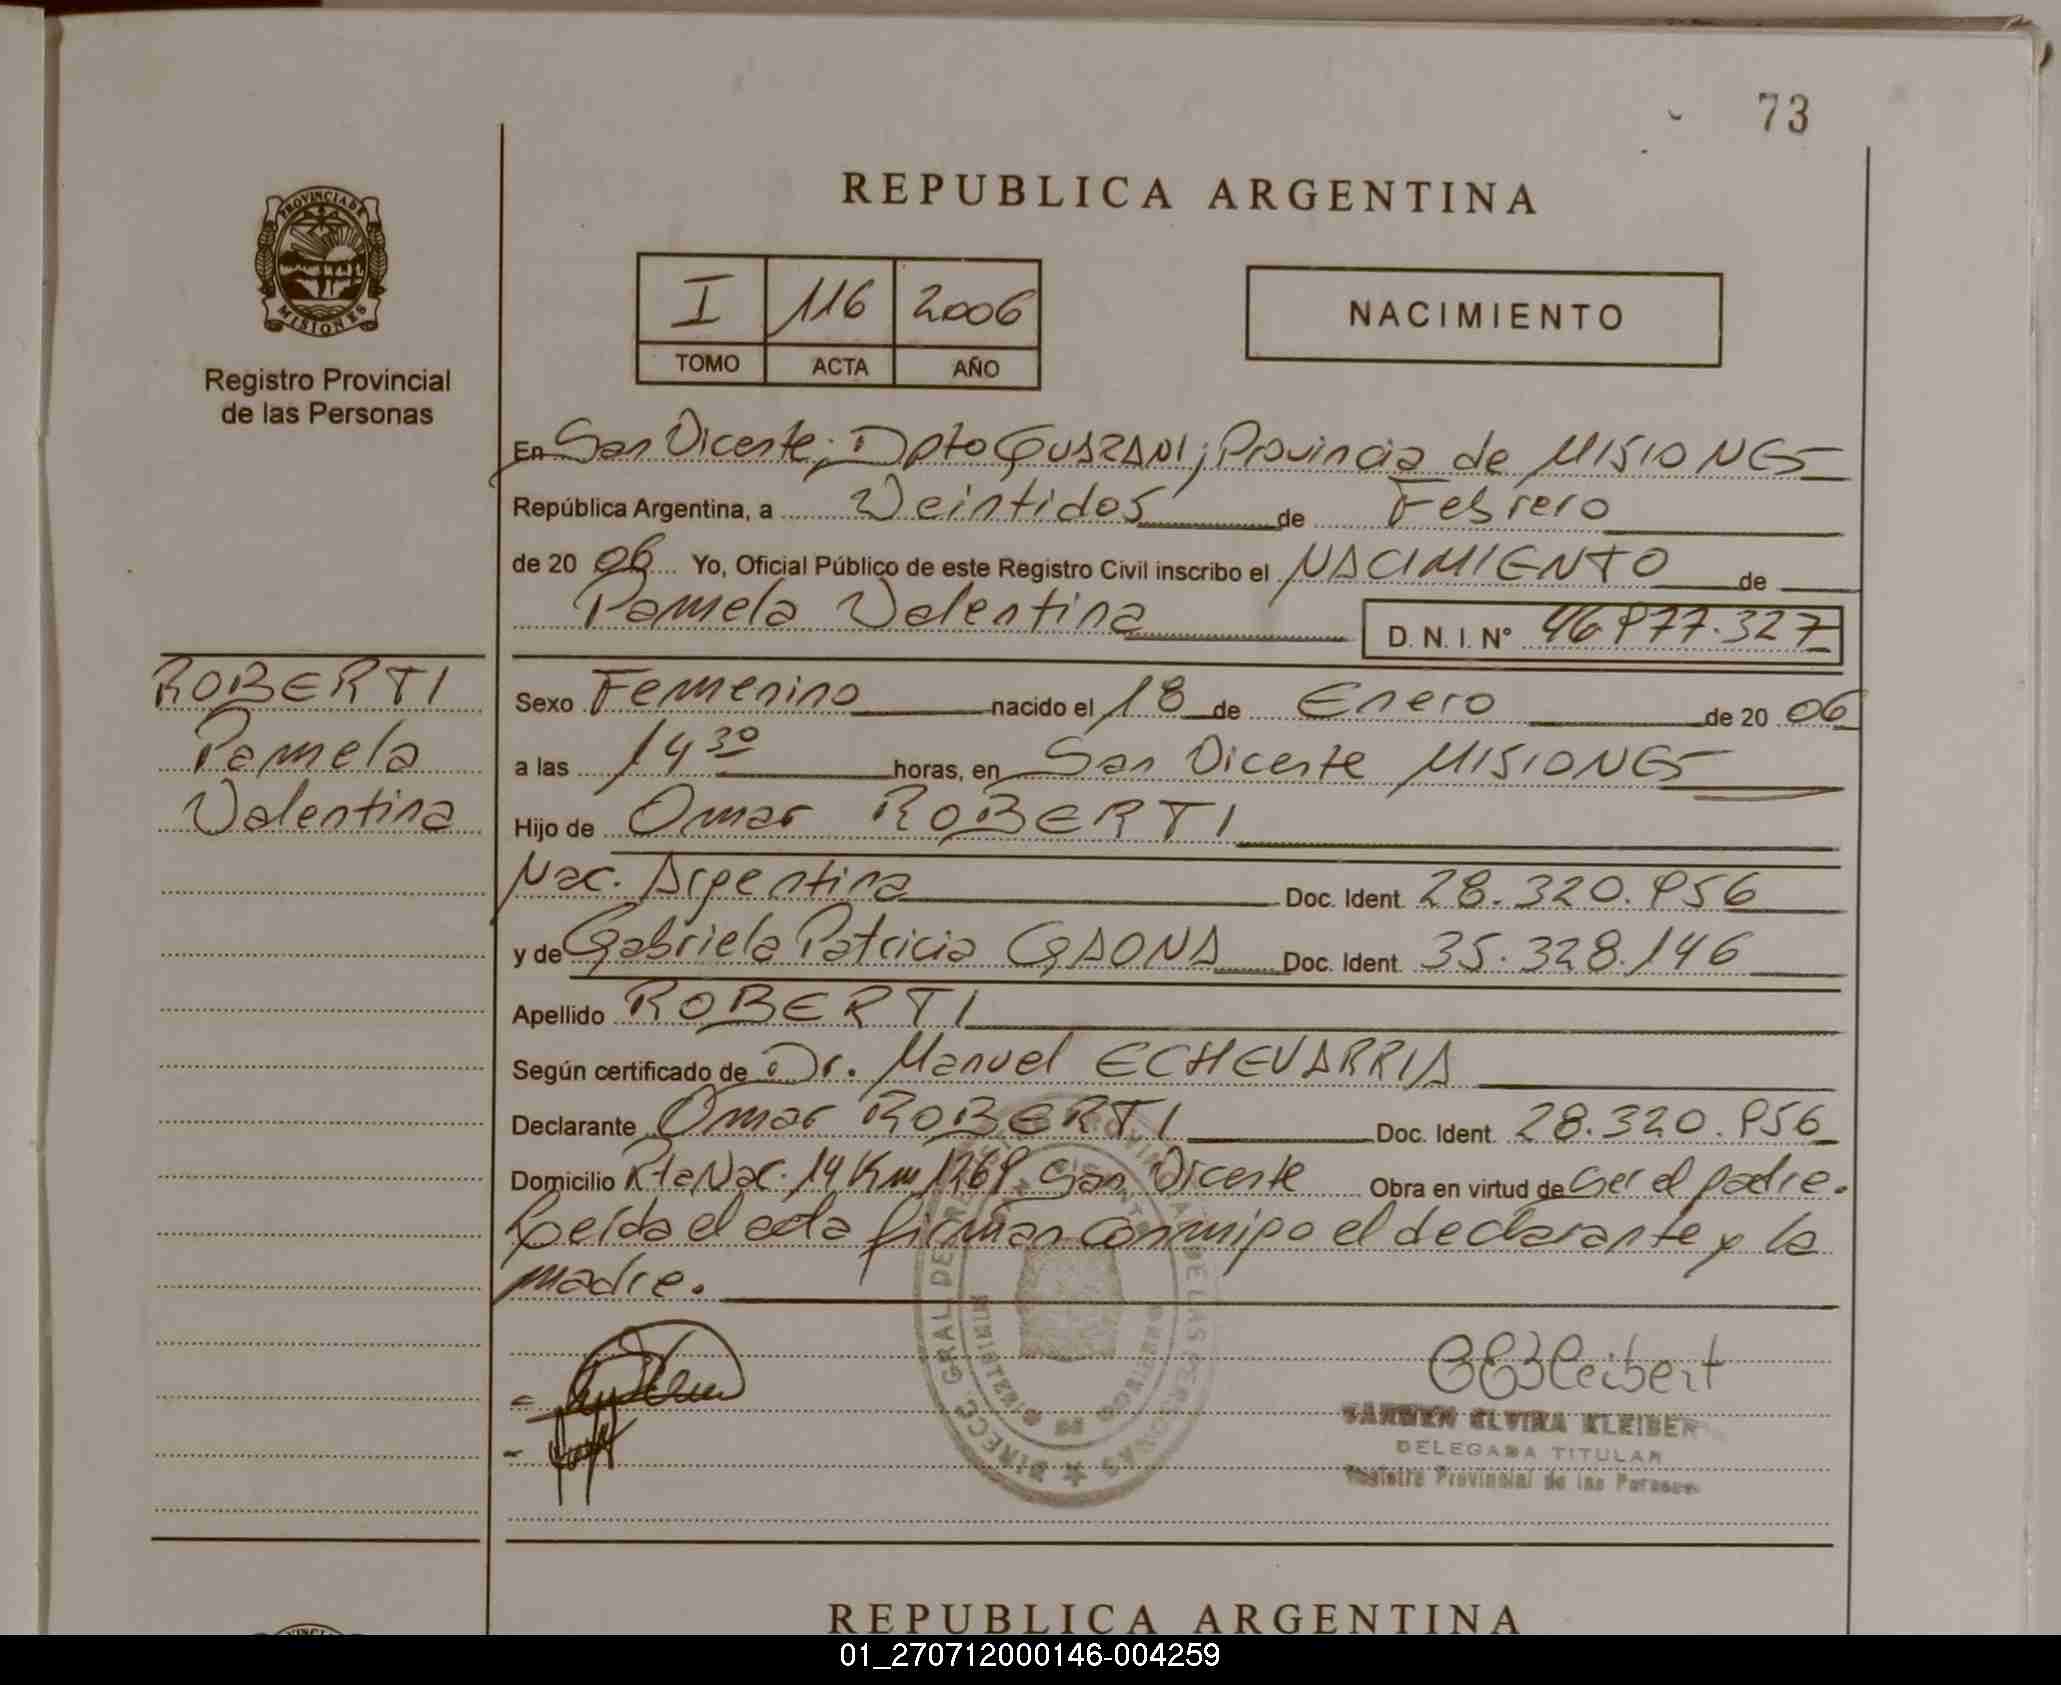 73
PROVINCIA DE
MISIONES
Registro Provincial
de las Personas
REPUBLICA ARGENTINA
I 116 2006
TOMO ACTA AÑO
NACIMIENTO
En San Vicente; Dpto GUARANI; Provincia de MISIONES
República Argentina, a Veintidos de Febrero
de 20 06 Yo, Oficial Público de este Registro Civil inscribo el NACIMIENTO de
Pamela Valentina D. N. I. Nº 46.977.327
ROBERTI
Pamela
Valentina
Sexo Femenino nacido el 18 de Enero de 20 06
a las 14 30 horas, en San Vicente MISIONES
Hijo de Omar ROBERTI
Nac. Argentina Doc. Ident. 28.320.956
y de Gabriela Patricia GAONA Doc. Ident. 35.328.146
Apellido ROBERTI
Según certificado de Dr. Manuel ECHEVARRIA
Declarante Omar ROBERTI Doc. Ident. 28.320.956
Domicilio Rta Nac. 14 Km 1269 San Vicente Obra en virtud de ser el padre.
Leída el acta firman conmigo el declarante y la
madre.
CEKleibert
CARMEN ELVIRA KLEIBER
DELEGADA TITULAR
Registro Provincial de las Personas
REPUBLICA ARGENTINA
01_270712000146-004259